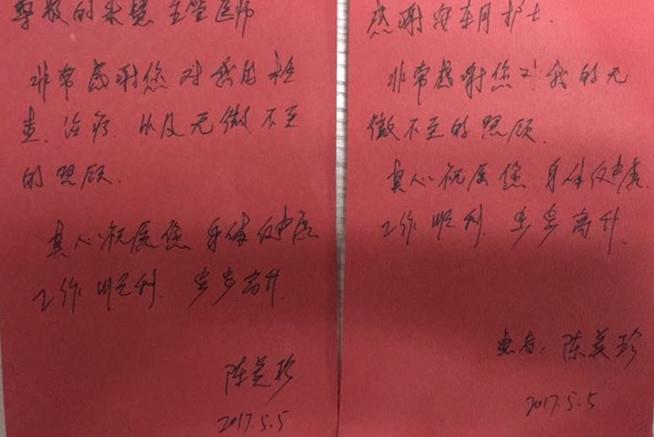 尊敬的朱慧 主管医师
非常感谢您 对我的检
查、治疗、以及无微不至
的照顾.
真心祝愿您 身体健康
工作顺利. 步步高升.
陈美珍
2017.5.5
感谢 月护士.
非常感谢您对我的无
微不至的照顾.
真心祝愿您 身体健康.
工作顺利. 步步高升.
患者: 陈美珍
2017.5.5